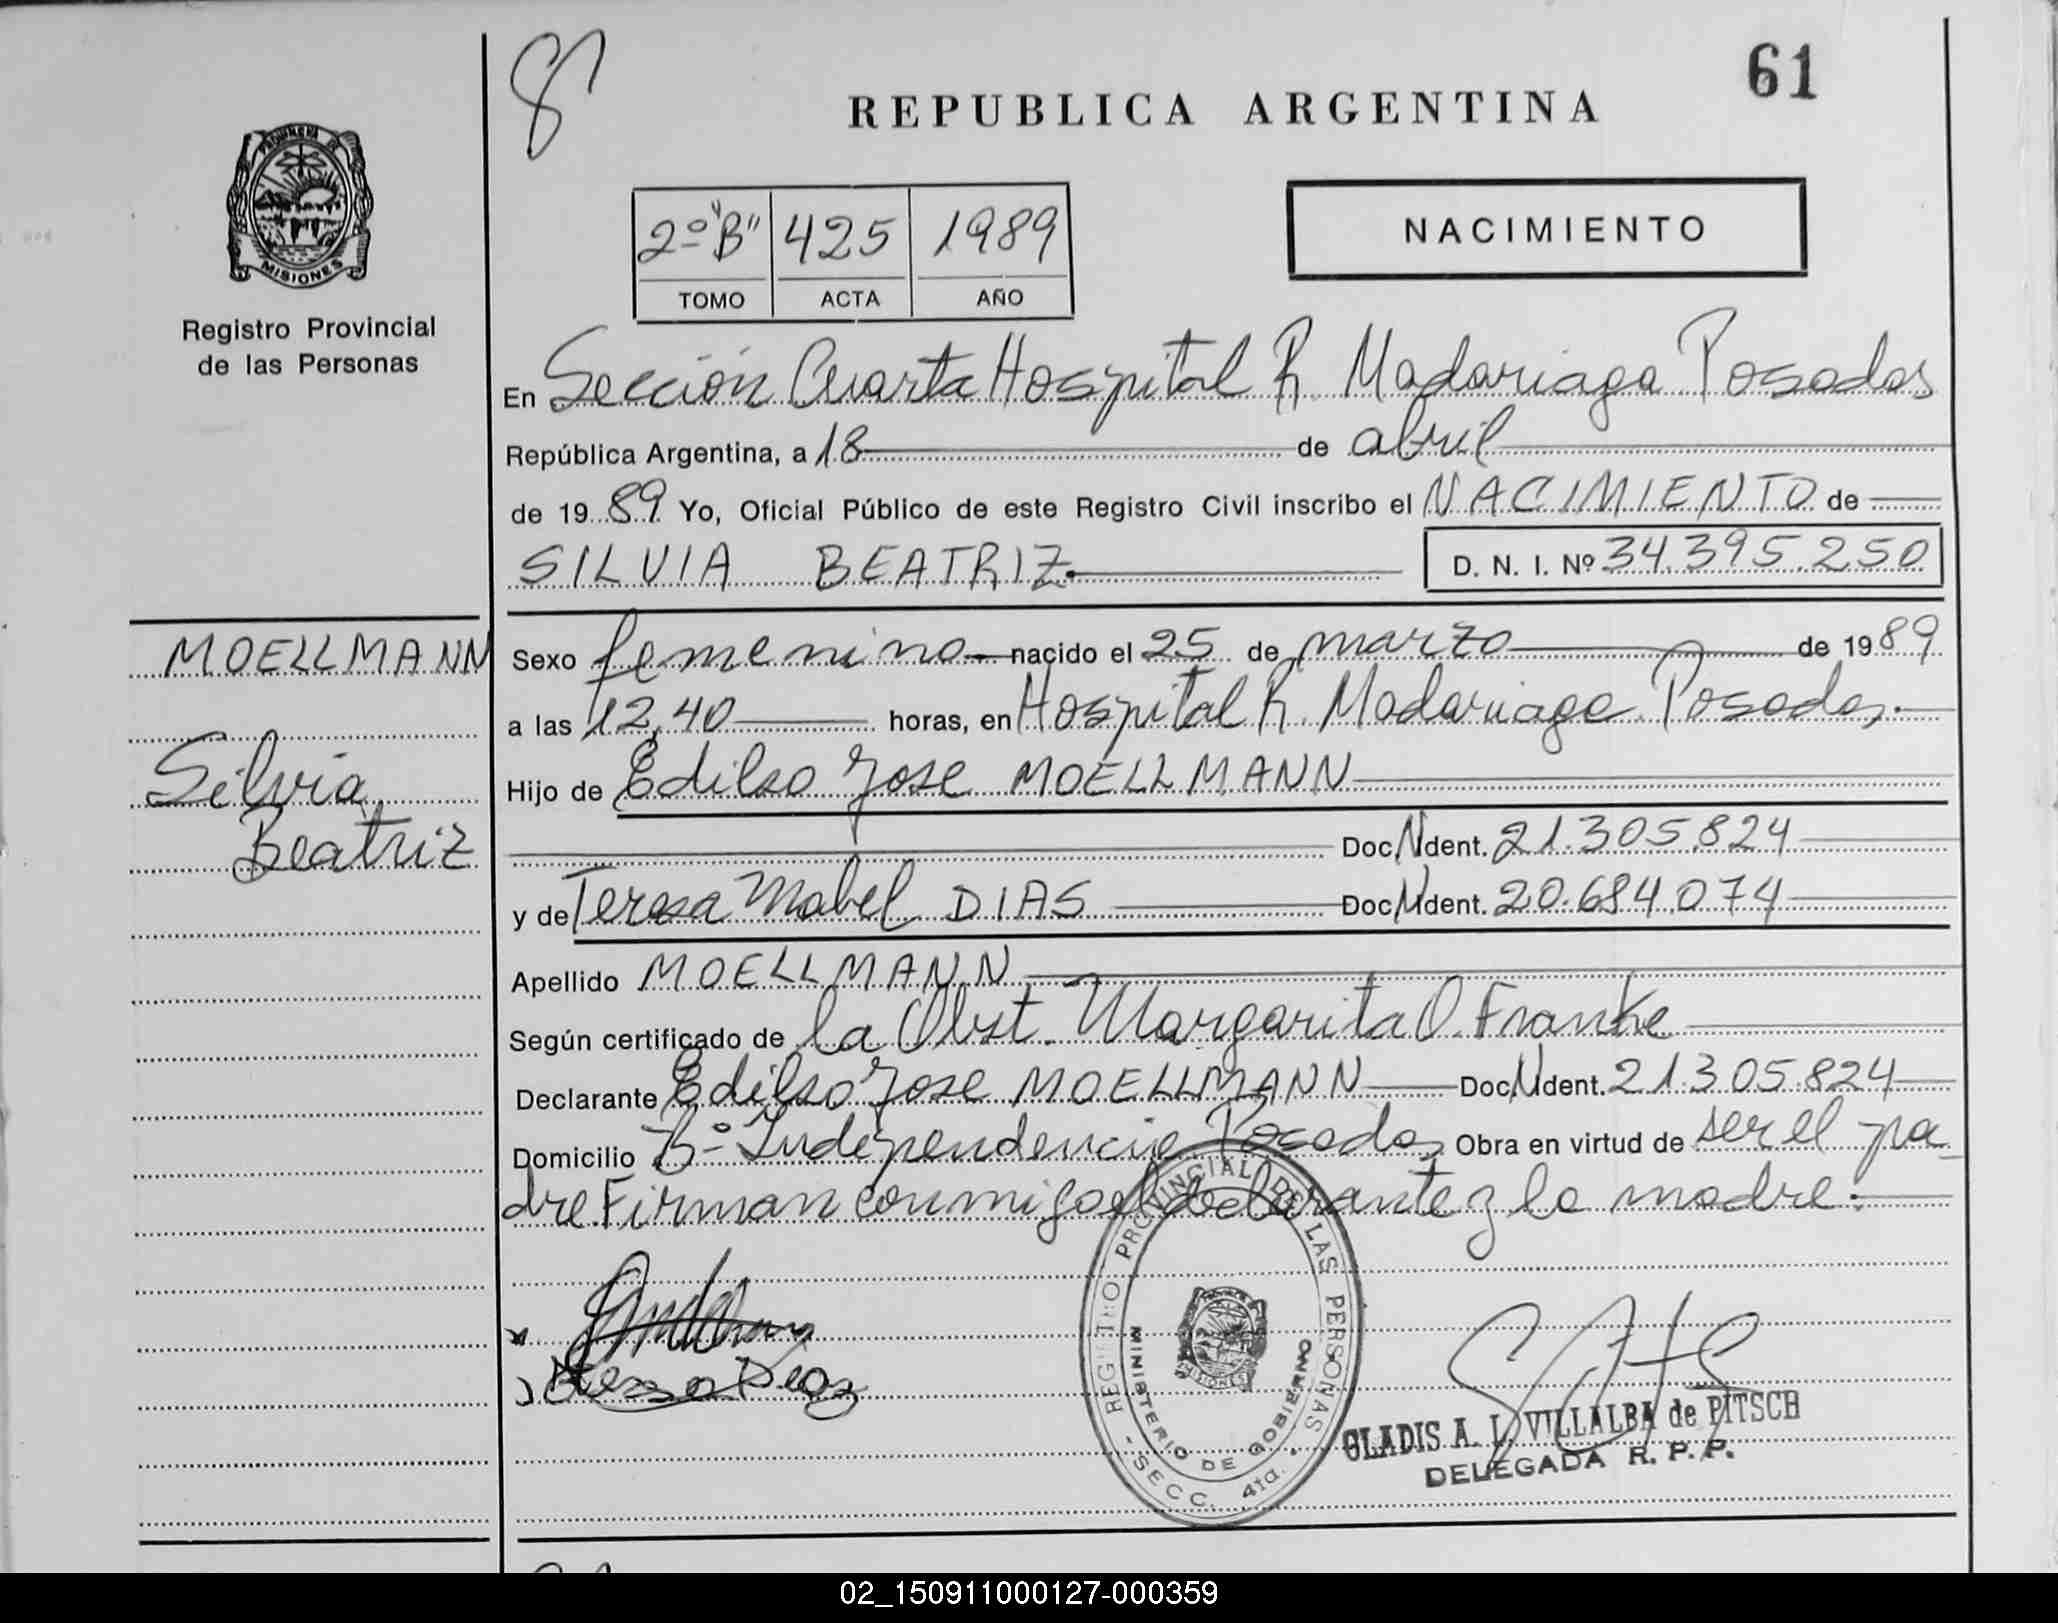 8
61
REPUBLICA ARGENTINA
PROVINCIA DE
MISIONES
Registro Provincial
de las Personas
2º "B" 425 1989
TOMO ACTA AÑO
NACIMIENTO
En Sección Cuarta Hospital R. Madariaga Posadas
República Argentina, a 18 de abril
de 1989 Yo, Oficial Público de este Registro Civil inscribo el NACIMIENTO de
SILVIA BEATRIZ.
D. N. I. Nº 34.395.250
MOELLMANN
Silvia
Beatriz
Sexo femenino nacido el 25 de marzo de 1989
a las 12,40 horas, en Hospital R. Madariaga Posadas.
Hijo de Edilso Jose MOELLMANN
Doc. N Ident. 21.305.824
y de Teresa Mabel DIAS Doc. N Ident. 20.684.074
Apellido MOELLMANN
Según certificado de la Obst. Margarita O. Franke
Declarante Edilso Jose MOELLMANN Doc. N Ident. 21.305.824
Domicilio Bº Independencia Posadas Obra en virtud de ser el pa
dre. Firman conmigo el declarante y la madre.
REGISTRO PROVINCIAL DE LAS PERSONAS
MINISTERIO DE GOBIERNO
- SECC. 4ta. -
MISIONES
GLADIS A. L. VILLALBA de PITSCH
DELEGADA R. P. P.
02_150911000127-000359